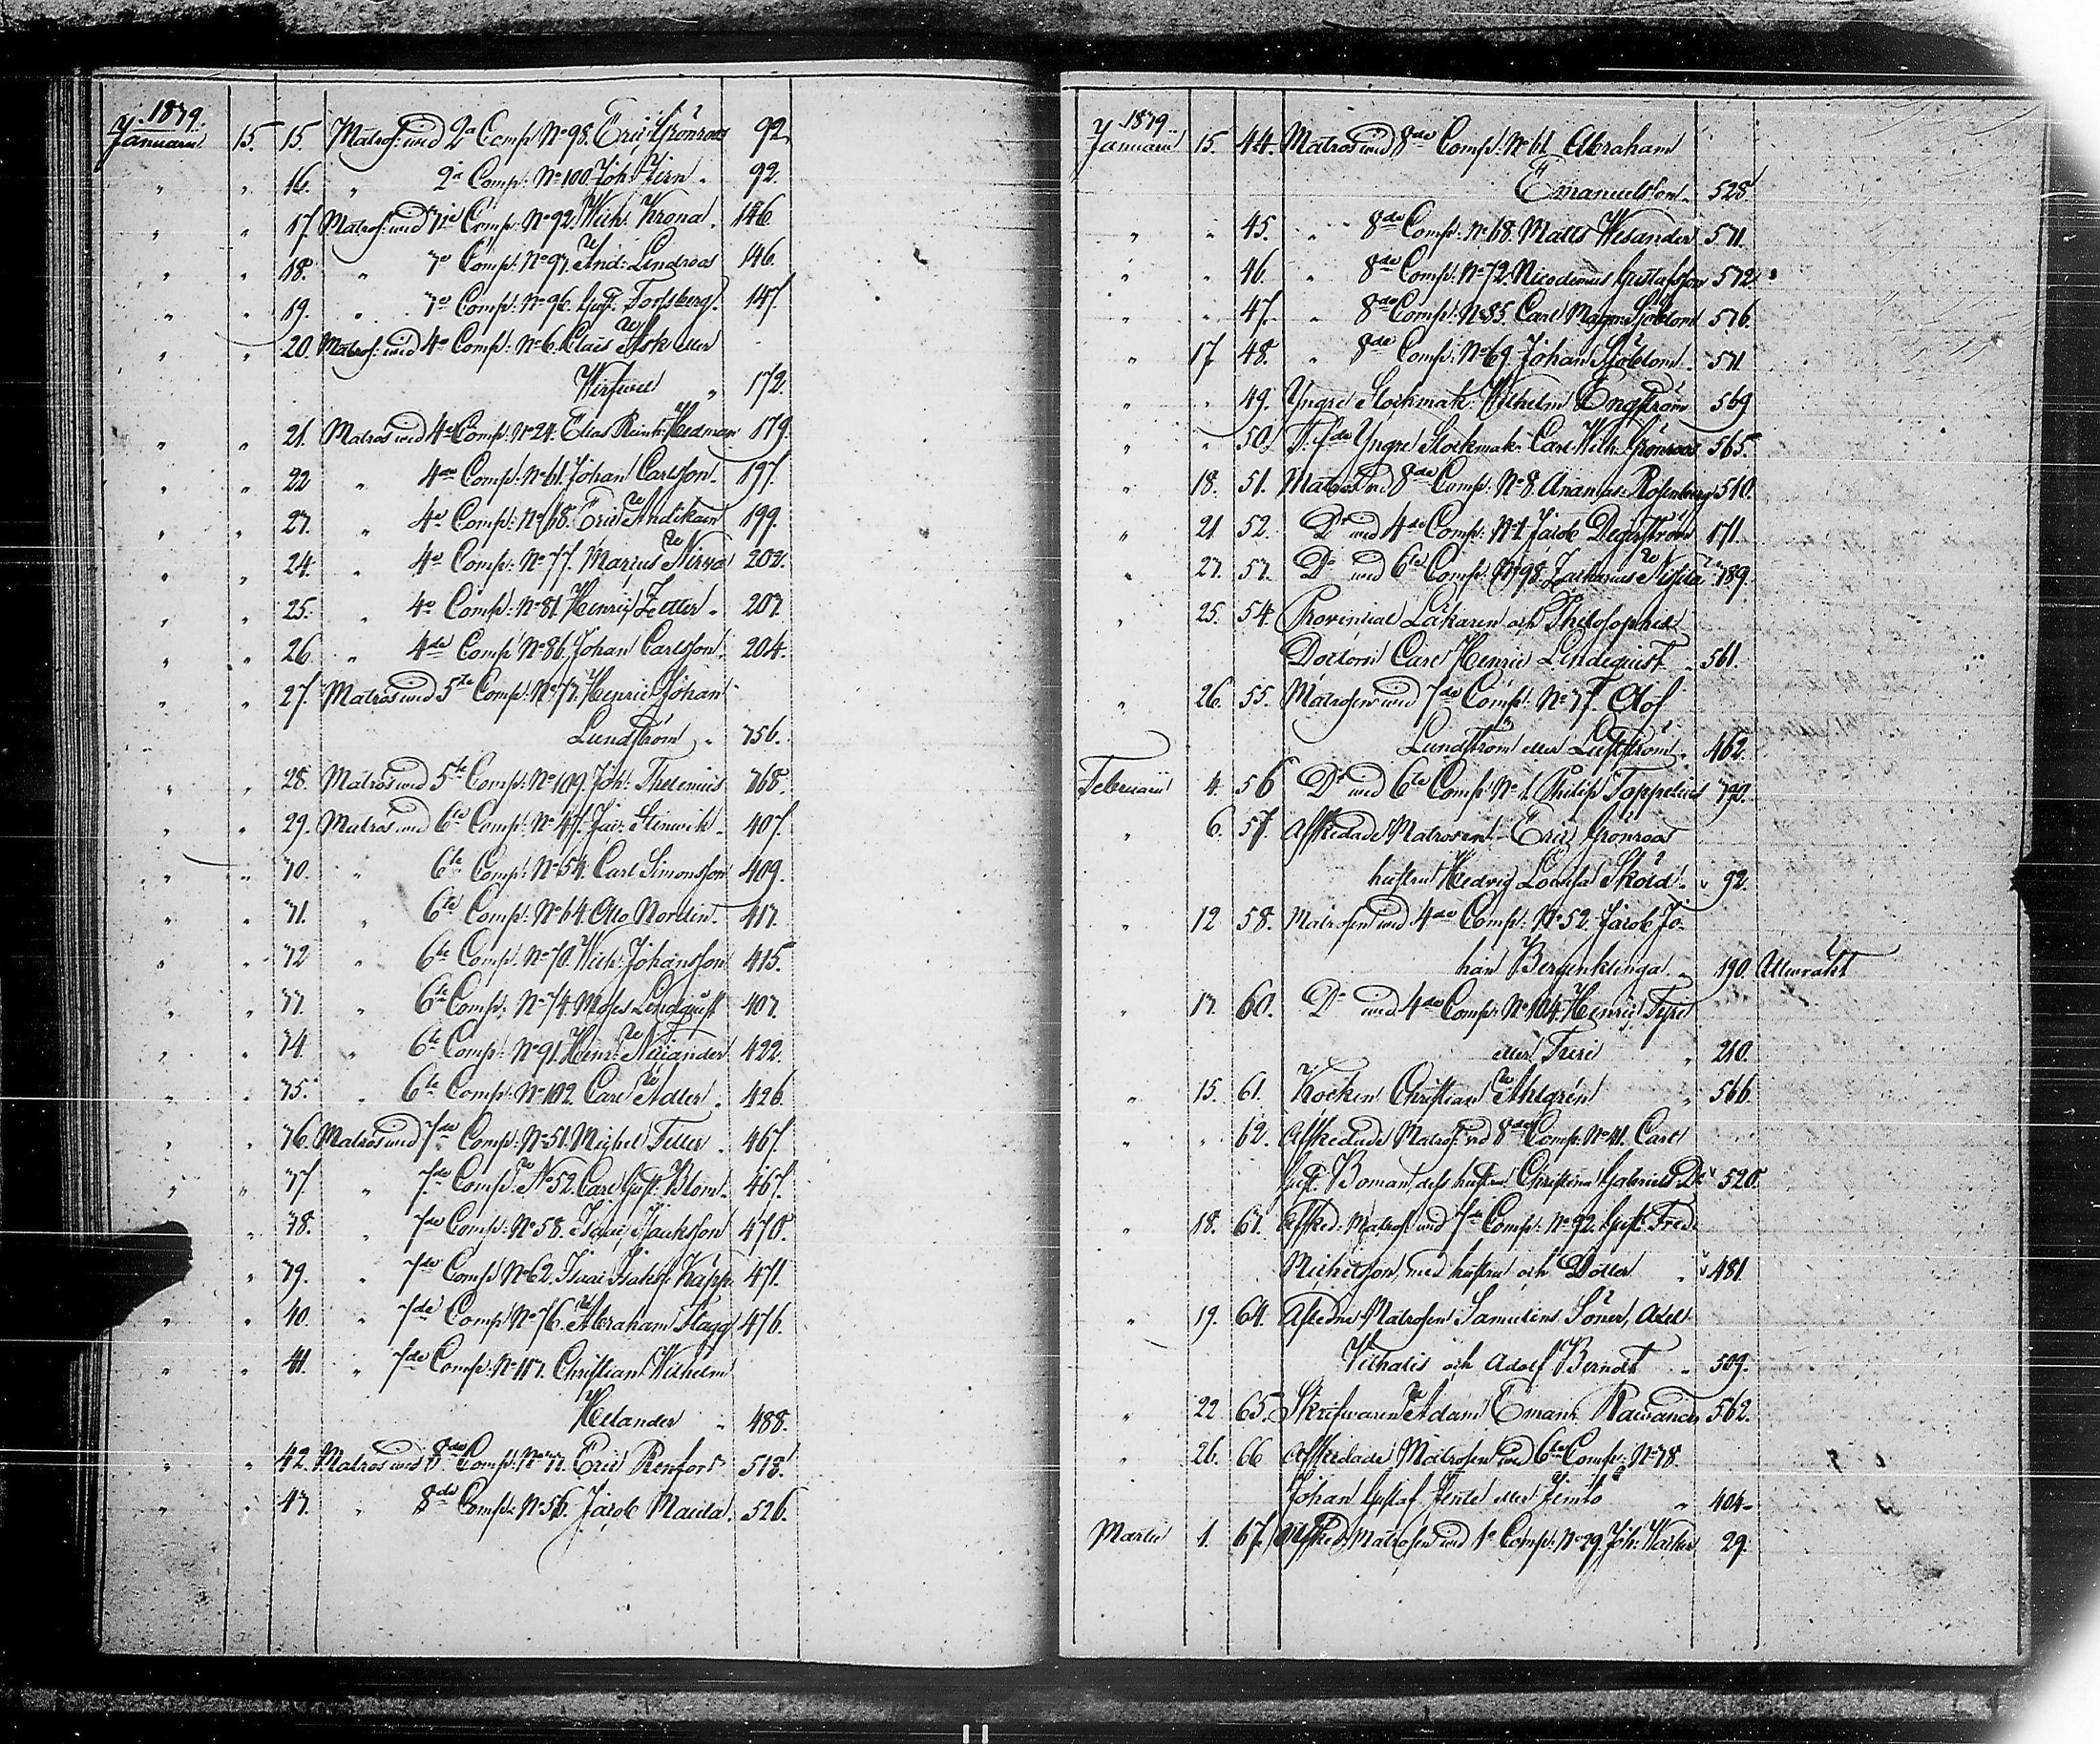 1839.
Januarii 15. 15. Matros: wid 2a Comp: No 98. Eric Grönroos 92.
" " 16. " 2a Comp: No 100. Joh: Jern. 92.
" " 17. Matros: wid 3ie Comp: No 92. Wilh: Krona. 146
" " 18. " 3e Comp: No 93. And: Lindroos 146.
" " 19. " 3e Comp: No 96. Gust. Forssberg. 147.
" " 20. Matros: wid 4e Comp: No 6. Clais Ask eller
Wirfwel " 172.
" " 21. Matros wid 4de Comp: No 24. Elias Reinh: Hedman 179.
" " 22 " 4de Comp: No 61. Johan Carlsson. 197.
" " 23. " 4e Comp: No 68. Eric Andikain 199.
" " 24. " 4e Comp: No 77. Marius Nirva 202.
" " 25. " 4e Comp: No 81. Henric Zetter. 203.
" " 26. " 4de Comp No 86. Johan Carlsson. 204.
" " 27. Matros wid 5te Comp: No 73. Henric Johan
Lundström " 356.
" " 28. Matros wid 5te Comp: No 109. Joh: Thelenius 368.
" " 29. Matros wid 6te Comp: No 47. Jac: Stenwik. 407.
" " 30. " 6te Comp: No 54. Carl Simonsson 409.
" " 31. " 6te Comp: No 64. Otto Nordin. 413.
" " 32 " 6te Comp: No 70. Wilh: Johansson 415.
" " 33. " 6te Comp: No 34. Moses Lindqvist 403.
" " 34. " 6te Comp: No 91. Henr: Nijander 422.
" " 35. " 6te Comp: No 102. Carl Adler. 426.
" " 36. Matros wid 7de Comp: No 51. Michel Teller. 467.
" " 37. " 7de Comp: No 52. Carl Gust: Blom. 467.
" " 38. " 7de Comp: No 58. Isaac Isacksson 470.
" " 39. " 7de Comp No 62. Isaac Isaks: Käpp. 471.
" " 40. " 7de Comp No 76. Abraham Flagg 476.
" " 41. " 7de Comp: No 113. Christian Wilhelm
Helander " 488.
" " 42. Matros wid 8de Comp: No 33. Eric Renfors 518.
" " 43. " 8de Comp: No 56. Jacob Macila. 526.
1839.
Januarii 15. 44. Matros wid 8de Comp: No 61. Abraham
Emanuelsson. 528
" " 45. " 8de Comp: No 68. Matts Wesander 531.
" " 46. " 8de Comp: No 72. Nicodemus Gustafsson 532.
" " 47. " 8de Comp: No 85. Carl Magn: Sjöblom 536.
" 17 48. " 8de Comp: No 69. Johan Sjöblom. 531
" " 49. Yngre Stockmak: Wilhelm Engström 569
" " 50. T.f.de Yngre Stockmak: Carl Wilh: Grönroos 565.
" 18. 51. Matros wid 8de Comp: No 8. Ananias Rosenberg 510.
" 21 52. Do wid 4de Comp: No 1. Jacob Degerström 171.
" 23. 53. Do wid 6te Comp: No 98. Zacharias 389.
" 25. 54. Provincial Läkaren och Philosophie
Doctorn Carl Henric Lindequist. 561.
" 26. 55. Matrosen wid 7de Comp: No 37. Olof
Lundström eller Luftström. 462.
Februarii 4. 56 Do wid 6te Comp No 1. Philip Toppelius 393.
" 6. 57. Afskedade Matrosens Eric Grönroos
hustru Hedvig Lovisa Sköld. " 92.
" 12 58. Matrosen wid 4de Comp: No 52. Jacob Jo-
han Bergenklinga. " 190. Utwrakt
" 13. 60. Do wid 4de Comp: No 104. Henric Fyre
eller Freri " 210.
" 15. 61. Kocken Christian Ahlgrén " 566.
" " 62. Afskedade Matros: wid 8de Comp: No 41. Carl
Gust. Boman, dess hustru Christina Gabriels Dr 520.
" 18. 63. Afsked: Matros: wid 7de Comp: No 92. Gust. Fred:
Michelsson, med hustru och Dotter " 481.
" 19. 64. Afledne Matrosen Samulins Söner, Axel
Vithalis och Adolf Berndt. 509.
" 22 65. Skrifwaren Adam Eman: Rawander 562.
" 26. 66 Afskedade Matrosen wid 6te Comp: No 38.
Johan Gustaf Jente eller Jemtö " 404.
Martii 1. 67. Afsked: Matrosen wid 1e Comp: No 29. Joh: Wacker 29.